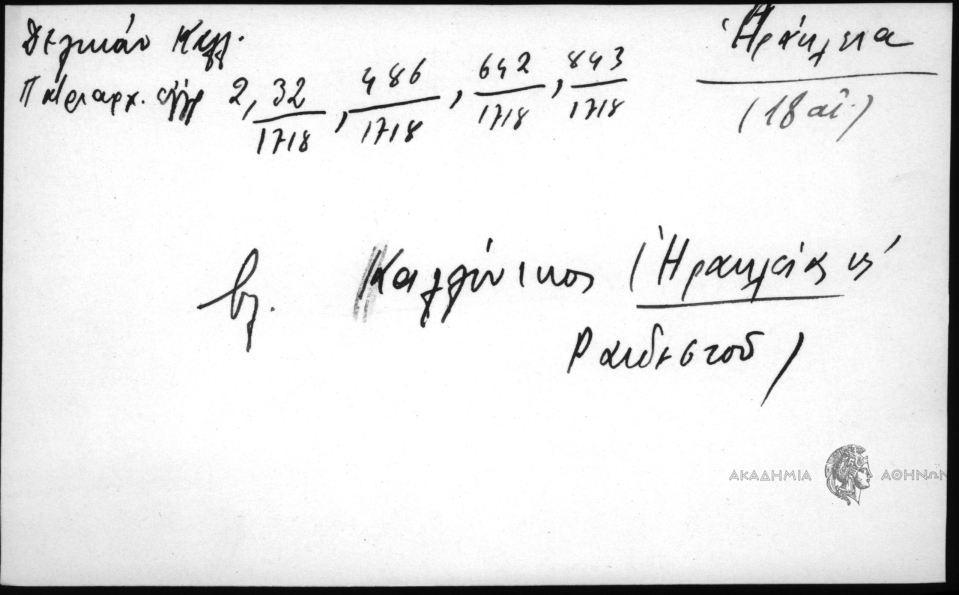 Δελικάν Καλλ.
Πατριαρχ. ἔγγρ 2, 32/1718, 486/1718, 642/1718, 843/1718
Ἡράκλεια
(18 αἰ.)
βλ. Καλλίνικος (Ἡρακλείας κ'
Ραιδεστοῦ)
ΑΚΑΔΗΜΙΑ ΑΘΗΝΩΝ